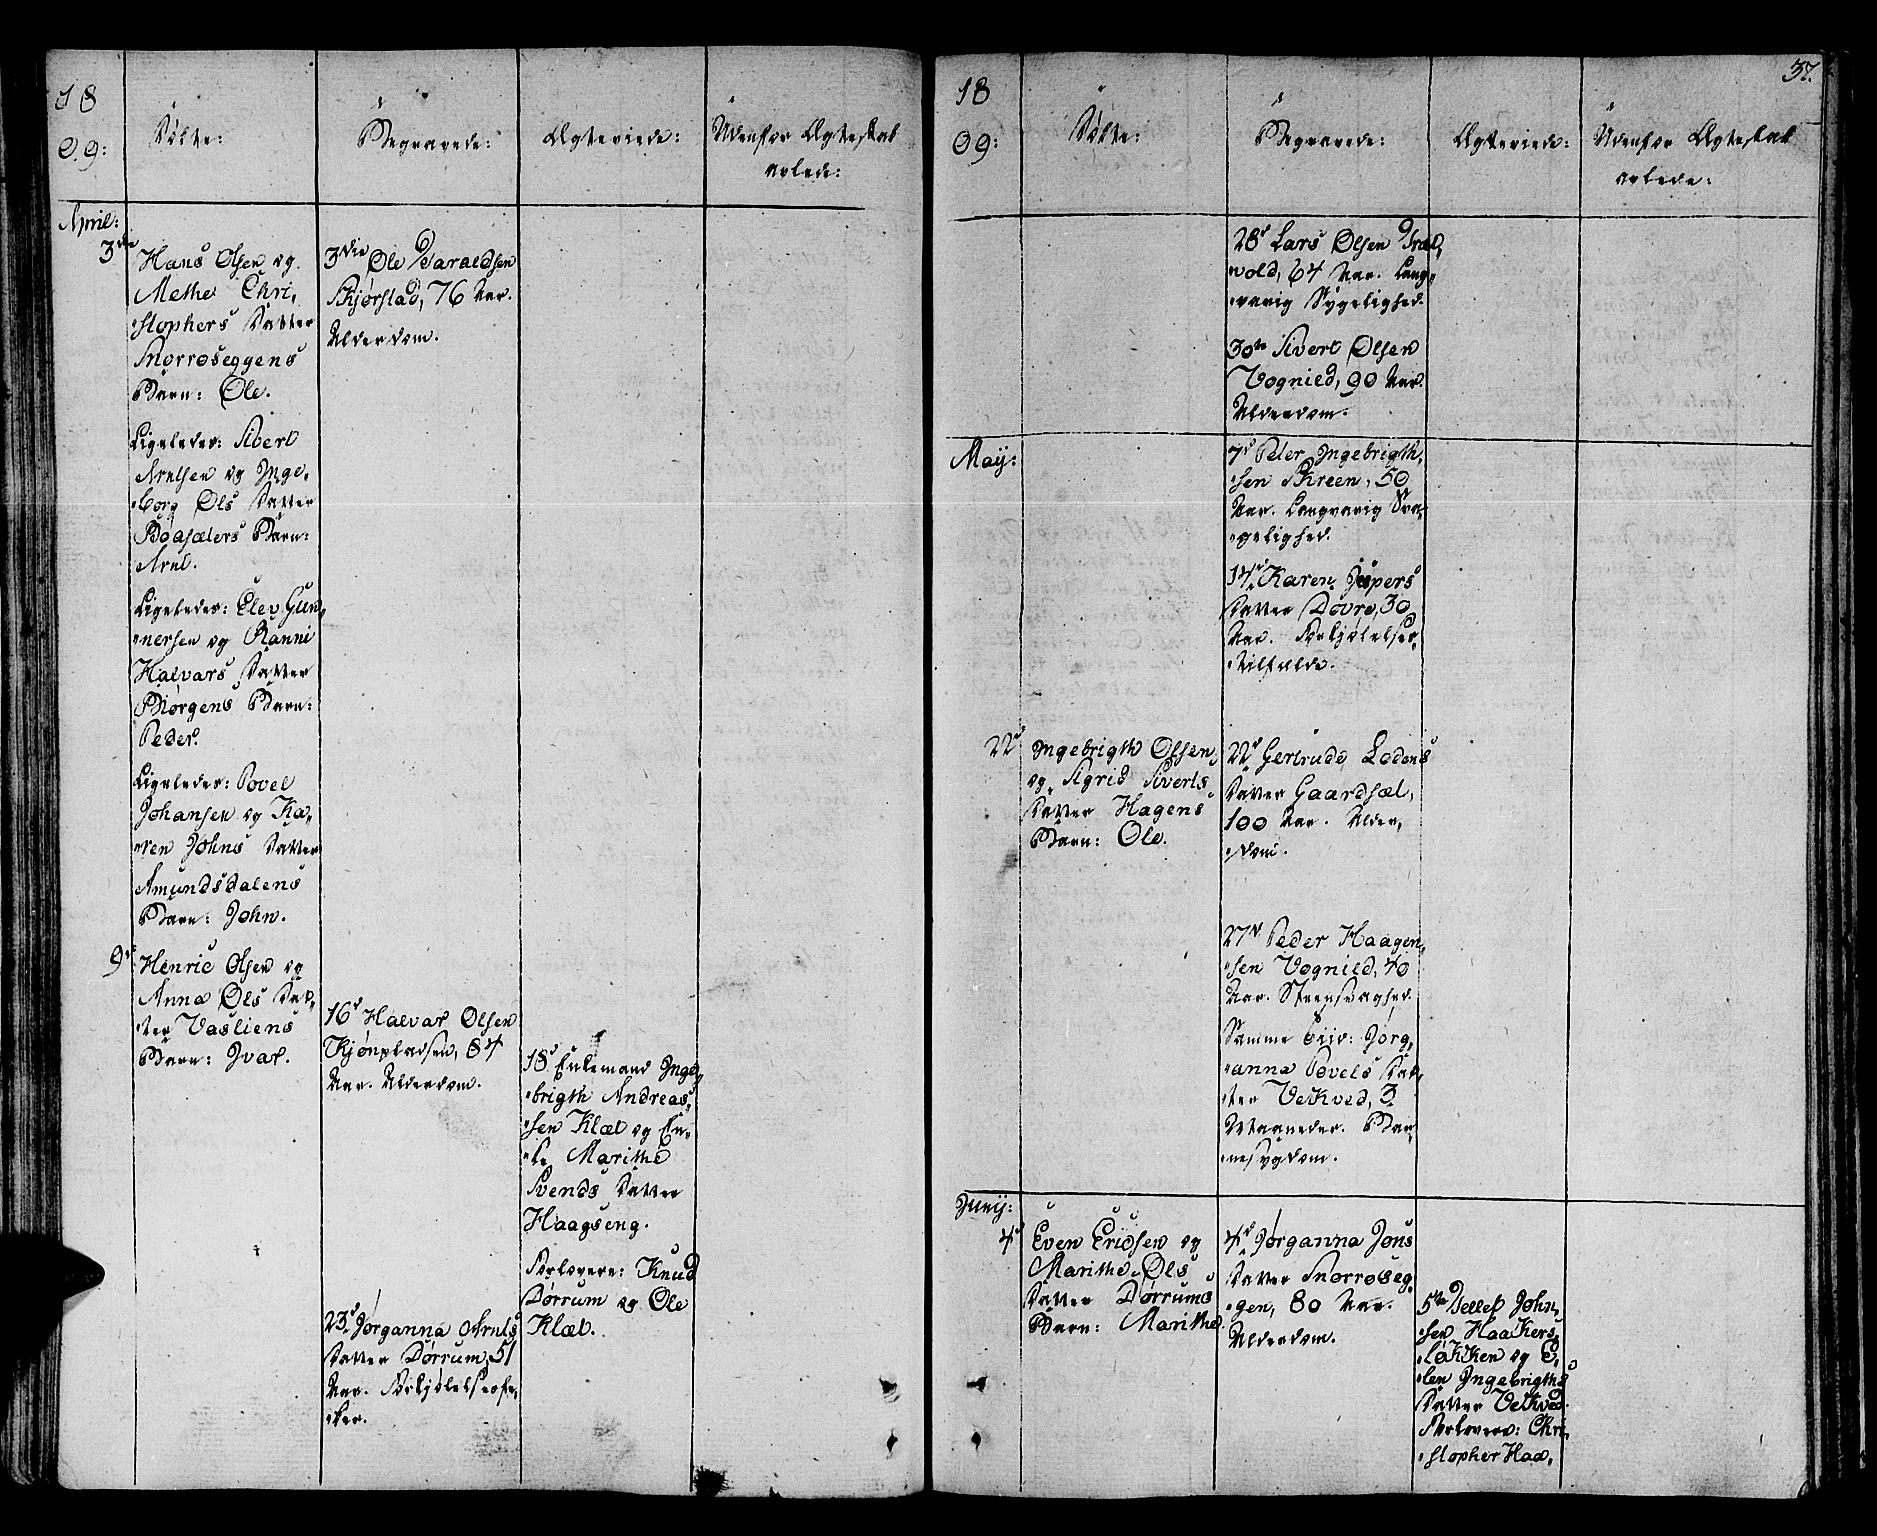 18
09:
Døbte:
Begravede:
Ægteviede:
Udenfor Ægteskab
avlede:
April:
3die
Hans Olsen og
Methe Chri,
,stophers Datter
Snorroseggens
Barn: Ole.
Ligeledes: Sivert
Arntsen og Inge,
,borg Ols Datter
Bøasæters Barn:
Arnt.
Ligeledes: Elev Gun,
,nersen og Ranni
Halvars Datter
Biørgens Barn:
Peder.
Ligeledes: Povel
Johansen og Ka,
,ren Johns Datter
Amundsdalens
Barn: John.
9d
Henric Olsen og
Anna Ols Dat,
,ter Vasliens
Barn: Ivar.
3die Ole Haraldsen
Skjørstad, 76 Aar.
Alderdom.
16d Halvar Olsen
Kjønpladsen, 84
Aar. Alderdom.
23d Jørganna Arnts
Datter Dørrum, 51
Aar. Forkjølelsesfe,
,ber.
18d Enkemand Inge,
,brigth Andreas,
,sen Klæt og En,
,ke Marithe
Svends Datter
Haagseng.
Forlovere: Knud
Dørrum og Ole
Klæt.
37.
18
09:
Døbte:
Begravede:
Ægteviede:
Udenfor Ægteskab
avlede:
28d Lars Olsen
vold, 64 Aar. Lang,
,varig Sygelighed.
30te Sivert Olsen
Vognild, 90 Aar.
Alderdom.
Maij:
7d Peter Ingebrigth,
,sen Skreen, 50
Aar. Langvarig Sva,
,gelighed.
14d Karen Jespers
Datter Dovre, 30
Aar. Forkjølelses,
,tilfælde.
22d
Ingebrigth Olsen
og Sigrid Siverts
Datter Hagens
Barn: Ole.
22d Gertrude Lodens
Datter Gaardsæt,
100 Aar. Alder,
,dom.
27d Peder Haagen,
,sen Vognild, 40
Aar. Steensvaghed.
Samme Tiid: Jørg,
,anna Povels Dat,
,ter Vetkved, 3
Maaneder. Bar,
,nesygdom.
Junij:
4d
Even Ericsen og
Marithe Ols
Datter Dørrums
Barn: Marithe.
4d Jørganna Jons
Datter Snorroseg,
,gen, 80 Aar.
Alderdom.
5te Dellef John,
,sen Haakers,
,løkken og E,
,len Ingebrigths
Datter Vetkved.
Forlovere: Chri,
,stopher Haa,